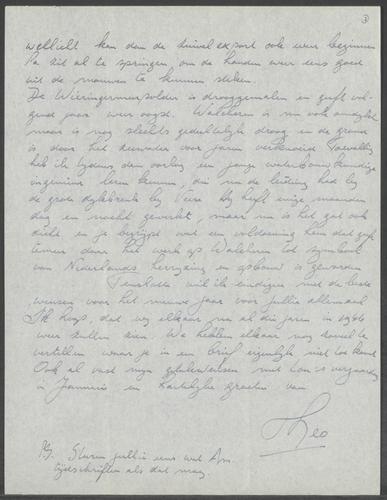 3
wellicht kan dan de zuivel export ook weer beginnen
Pa zit al te springen, om de handen weer eens goed
uit de mouwen te kunnen steken.
De Wieringermeerpolder is drooggemalen en geeft vol-
gend jaar weer oogst. Walcheren is nu ook
maar is nog slechts gedeeltelijk droog en de grond
is door het zeewater voor jaren verknoeid. Toevallig
heb ik tijdens den oorlog een jonge waterbouwkundige
ingenieur leren kennen, die nu de leiding had bij
de grote dijkbreuk bij Veere. Hij heeft enige maanden
dag en nacht gewerkt, maar nu is het gat ook
dicht en je begrijpt wel een voldoening hem dat geeft
temeer daar het werk op Walcheren tot symbool
van Nederlands herrijzing en opbouw is geworden
Tenslotte wil ik eindigen met de beste
wensen voor het nieuwe jaar voor jullie allemaal
Ik hoop, dat wij elkaar nu al die jaren in 1946
weer zullen zien. We hebben elkaar nog zoveel te
vertellen waar je in een brief eigenlijk niet toe komt
Ook al vast mijn gelukwensen met Con's verjaardag
in Januarie en hartelijke groeten van
Theo
P.S. Sturen jullie eens wat Am.
tijdschriften als dat mag.